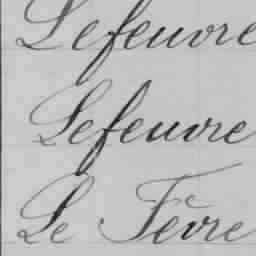 Lefeuvre
Lefeuvre
Le Fèvre